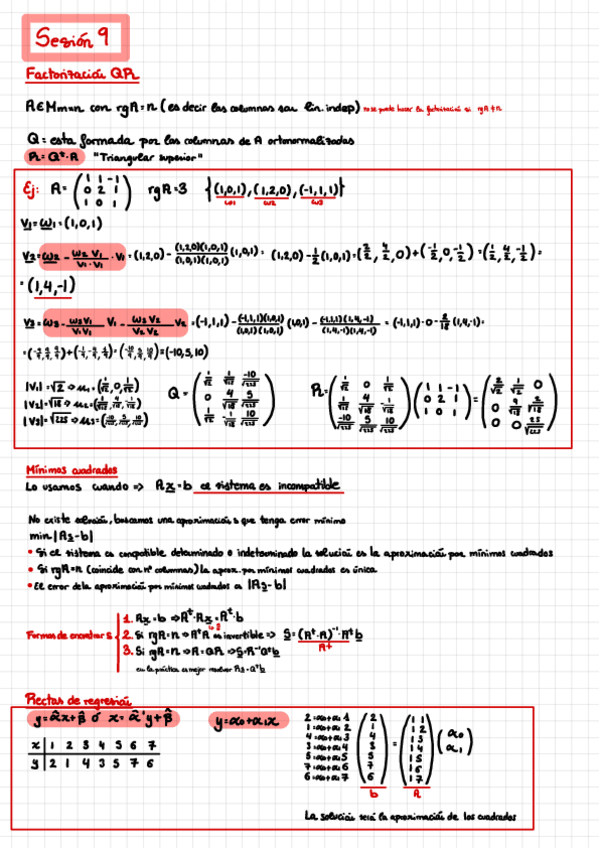 Sesión 9
Factorización QR
A∈Mmxn con rgA=n (es decir las columnas son lin. indep) no se puede hacer la factorización si rgA≠n
Q = esta formada por las columnas de A ortonormalizadas
R = Qᵗ·A "Triangular superior"
Ej: A = (1 1 -1
0 2 1
1 0 1) rgA=3 {(1,0,1), (1,2,0), (-1,1,1)}
ω1 ω2 ω3
V1=ω1=(1,0,1)
V2=ω2 - (ω2 V1 / V1·V1)·V1 = (1,2,0) - ((1,2,0)(1,0,1) / (1,0,1)(1,0,1)) (1,0,1) = (1,2,0) - 1/2 (1,0,1) =
= (1,4,-1)
V3 = ω3 - (ω3 V1 / V1 V1) V1 - (ω3 V2 / V2 V2) V2 = (-1,1,1) - ((-1,1,1)(1,0,1) / (1,0,1)(1,0,1)) (1,0,1) - ((-1,1,1)(1,4,-1) / (1,4,-1)(1,4,-1)) = (-1,1,1) - 0 - 2/18 (1,4,-1) =
= (-10,5,10)
|V1| = √2 ⇒ u1 = (1/√2, 0, 1/√2)
|V2| = √18 ⇒ u2 = (1/√18, 4/√18, -1/√18)
|V3| = √225 ⇒ u3 =
Q = R =
Mínimos cuadrados
Lo usamos cuando ⇒ Ax=b el sistema es incompatible
No existe solución, buscamos una aproximación s que tenga error mínimo
min|As-b|
• Si el sistema es compatible determinado o indeterminado la solución es la aproximación por mínimos cuadrados
• Si rgA=n (coincide con nº columnas) la aprox. por mínimos cuadrados es única
• El error de la aproximación por mínimos cuadrados a |As-b|
Formas de encontrar s
1. Ax=b ⇒ Aᵗ·Ax=Aᵗ·b
2. Si rgA=n ⇒ AᵗA es invertible ⇒ s = (Aᵗ·A)⁻¹·Aᵗb
A+
3. Si rgA=n ⇒ A=QR ⇒ s=R⁻¹Qᵗb
en la práctica es mejor resolver Rs=Qᵗb
Rectas de regresión
y=α̂x+β̂ ó x=α̂'y+β̂ y=α0+α1x
x | 1 2 3 4 5 6 7
y | 2 1 4 3 5 7 6
2=α0+α1 1
1=α0+α1 2
4=α0+α1 3
3=α0+α1 4
5=α0+α1 5
7=α0+α1 6
6=α0+α1 7
(2
1
4
3
5
7
6) = (1 1
1 2
1 3
1 4
1 5
1 6
1 7) (α0
α1)
b A
La solución será la aproximación de los cuadrados